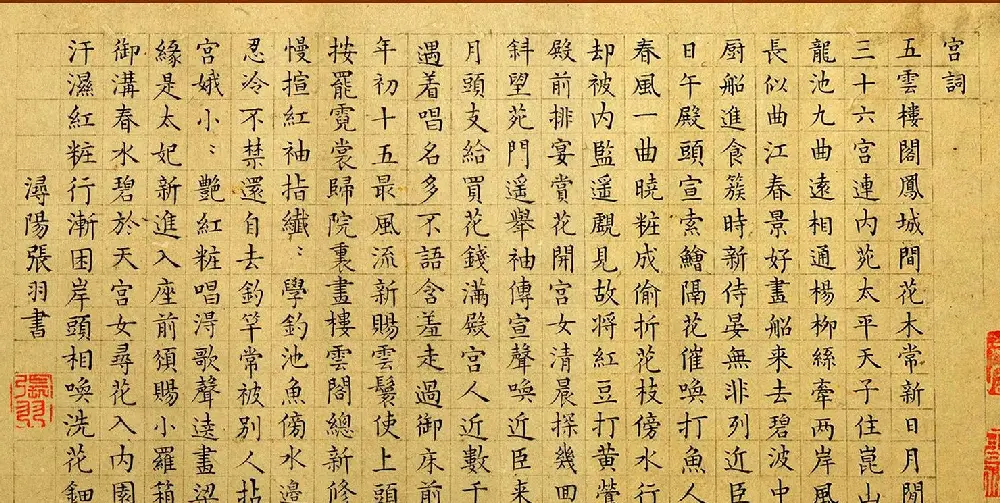 宮詞
五雲樓閣鳳城間花木常新日月閒
三十六宮連內苑太平天子住崑山
龍池九曲遠相通楊柳絲牽兩岸風
長似曲江春景好畫船来去碧波中
厨船進食簇時新侍宴無非列近臣
日午殿頭宣索鱠隔花催喚打魚人
春風一曲曉粧成偷折花枝傍水行
却被內監遥覷見故將紅豆打黄鶯
殿前排宴賞花開宮女清晨探幾回
斜望苑門遥舉袖傳宣聲喚近臣来
月頭支給買花錢滿殿宮人近數千
遇着唱名多不語含羞走過御床前
年初十五最風流新賜雲鬟使上頭
按罷霓裳歸院裏畫樓雲閣總新修
慢揎紅袖指纖〻學釣池魚傍水邊
忍冷不禁還自去釣竿常被別人拈
宮娥小〻艷紅粧唱淂歌聲遶畫梁
緣是太妃新進入座前頒賜小羅箱
御溝春水碧於天宮女尋花入內園
汗濕紅粧行漸困岸頭相喚洗花鈿
潯陽張羽書
張羽